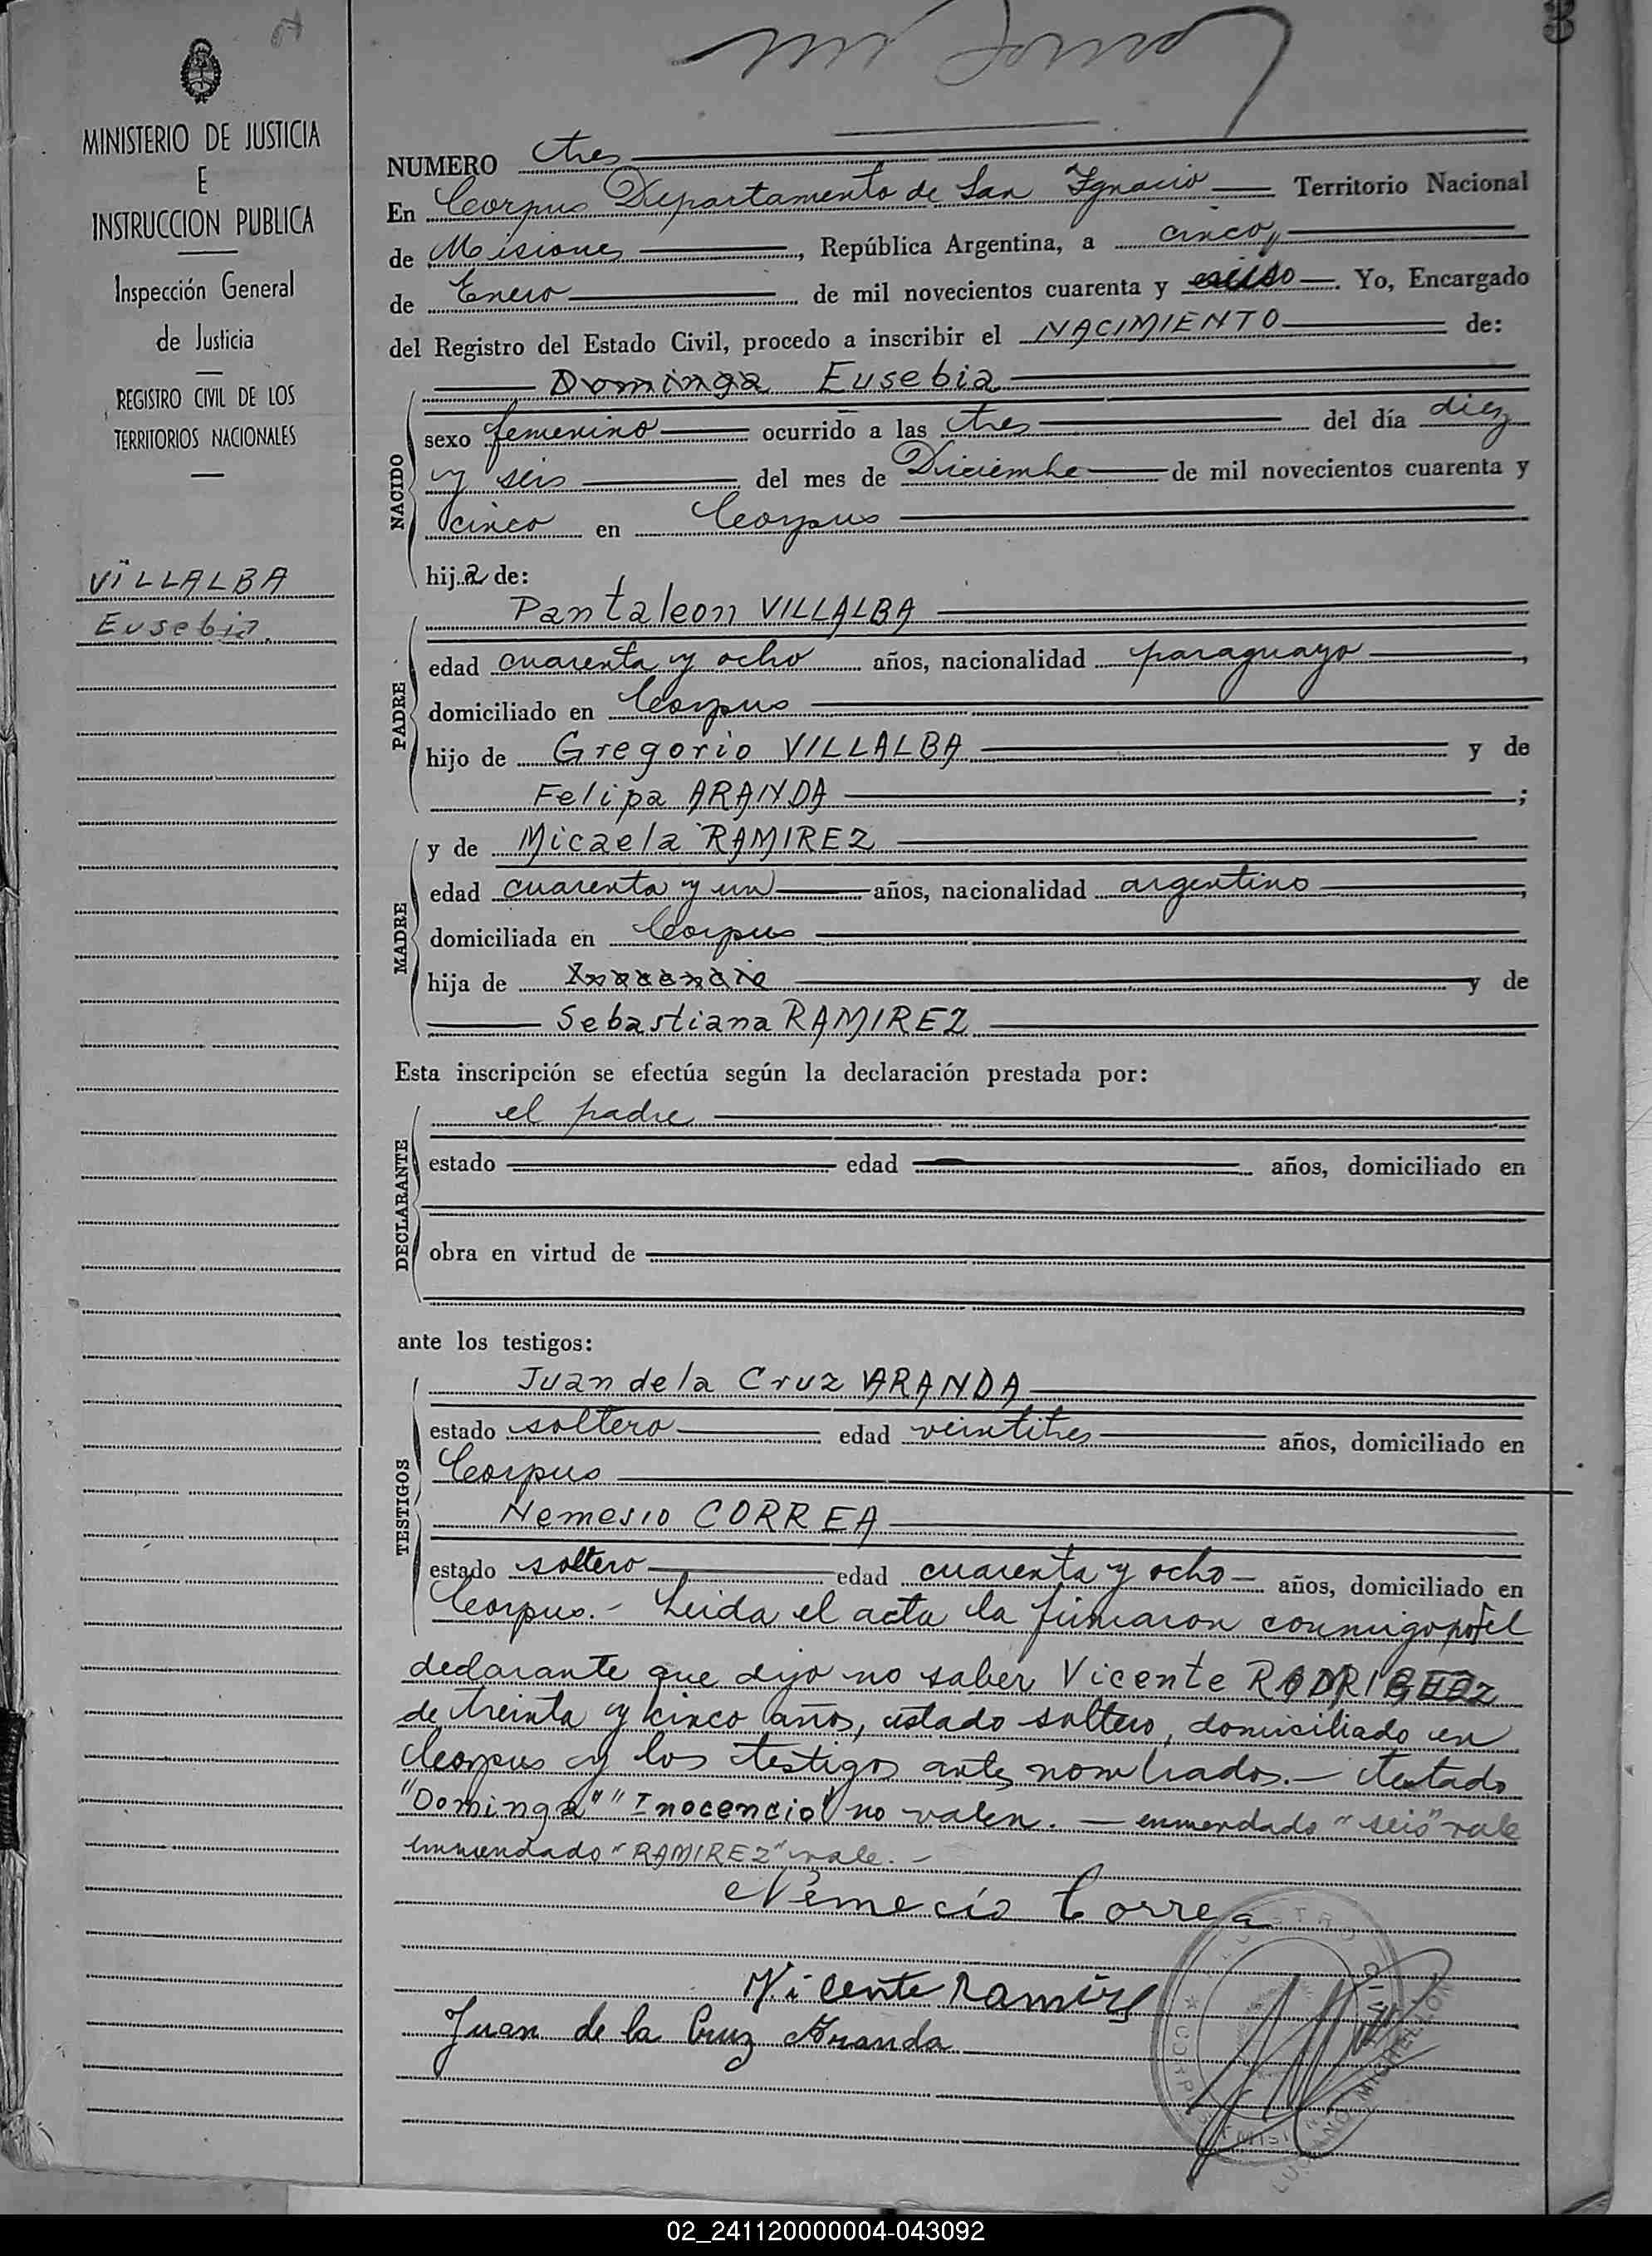 MINISTERIO DE JUSTICIA
E
INSTRUCCION PUBLICA
Inspección General
de Justicia
REGISTRO CIVIL DE LOS
TERRITORIOS NACIONALES
VILLALBA
Eusebia
NUMERO tres
En Corpus Departamento de San Ignacio Territorio Nacional
de Misiones, República Argentina, a cinco
de Enero de mil novecientos cuarenta y seis. Yo, Encargado
del Registro del Estado Civil, procedo a inscribir el NACIMIENTO de:
NACIDO
Dominga Eusebia
sexo femenino ocurrido a las tres del día diez
y seis del mes de Diciembre de mil novecientos cuarenta y
cinco en Corpus
hija de:
PADRE
Pantaleon VILLALBA
edad cuarenta y ocho años, nacionalidad paraguayo,
domiciliado en Corpus
hijo de Gregorio VILLALBA y de
Felipa ARANDA;
MADRE
y de Micaela RAMIREZ
edad cuarenta y un años, nacionalidad argentino,
domiciliada en Corpus
hija de Inocencio y de
Sebastiana RAMIREZ
Esta inscripción se efectúa según la declaración prestada por:
DECLARANTE
el padre
estado edad años, domiciliado en
obra en virtud de
ante los testigos:
TESTIGOS
Juan de la Cruz ARANDA
estado soltero edad veintitres años, domiciliado en
Corpus
Nemesio CORREA
estado soltero edad cuarenta y ocho años, domiciliado en
Corpus.- Leida el acta la firmaron conmigo por el
declarante que dijo no saber Vicente
de treinta y cinco años, estado soltero, domiciliado en
Corpus y los testigos antes nombrados.— testado
"Dominga" "Inocencio" no valen. — enmendado "seis" vale
enmendado "RAMIREZ" vale.-
Nemecio Correa
Vicente Ramirez
Juan de la Cruz Aranda
02_241120000004-043092